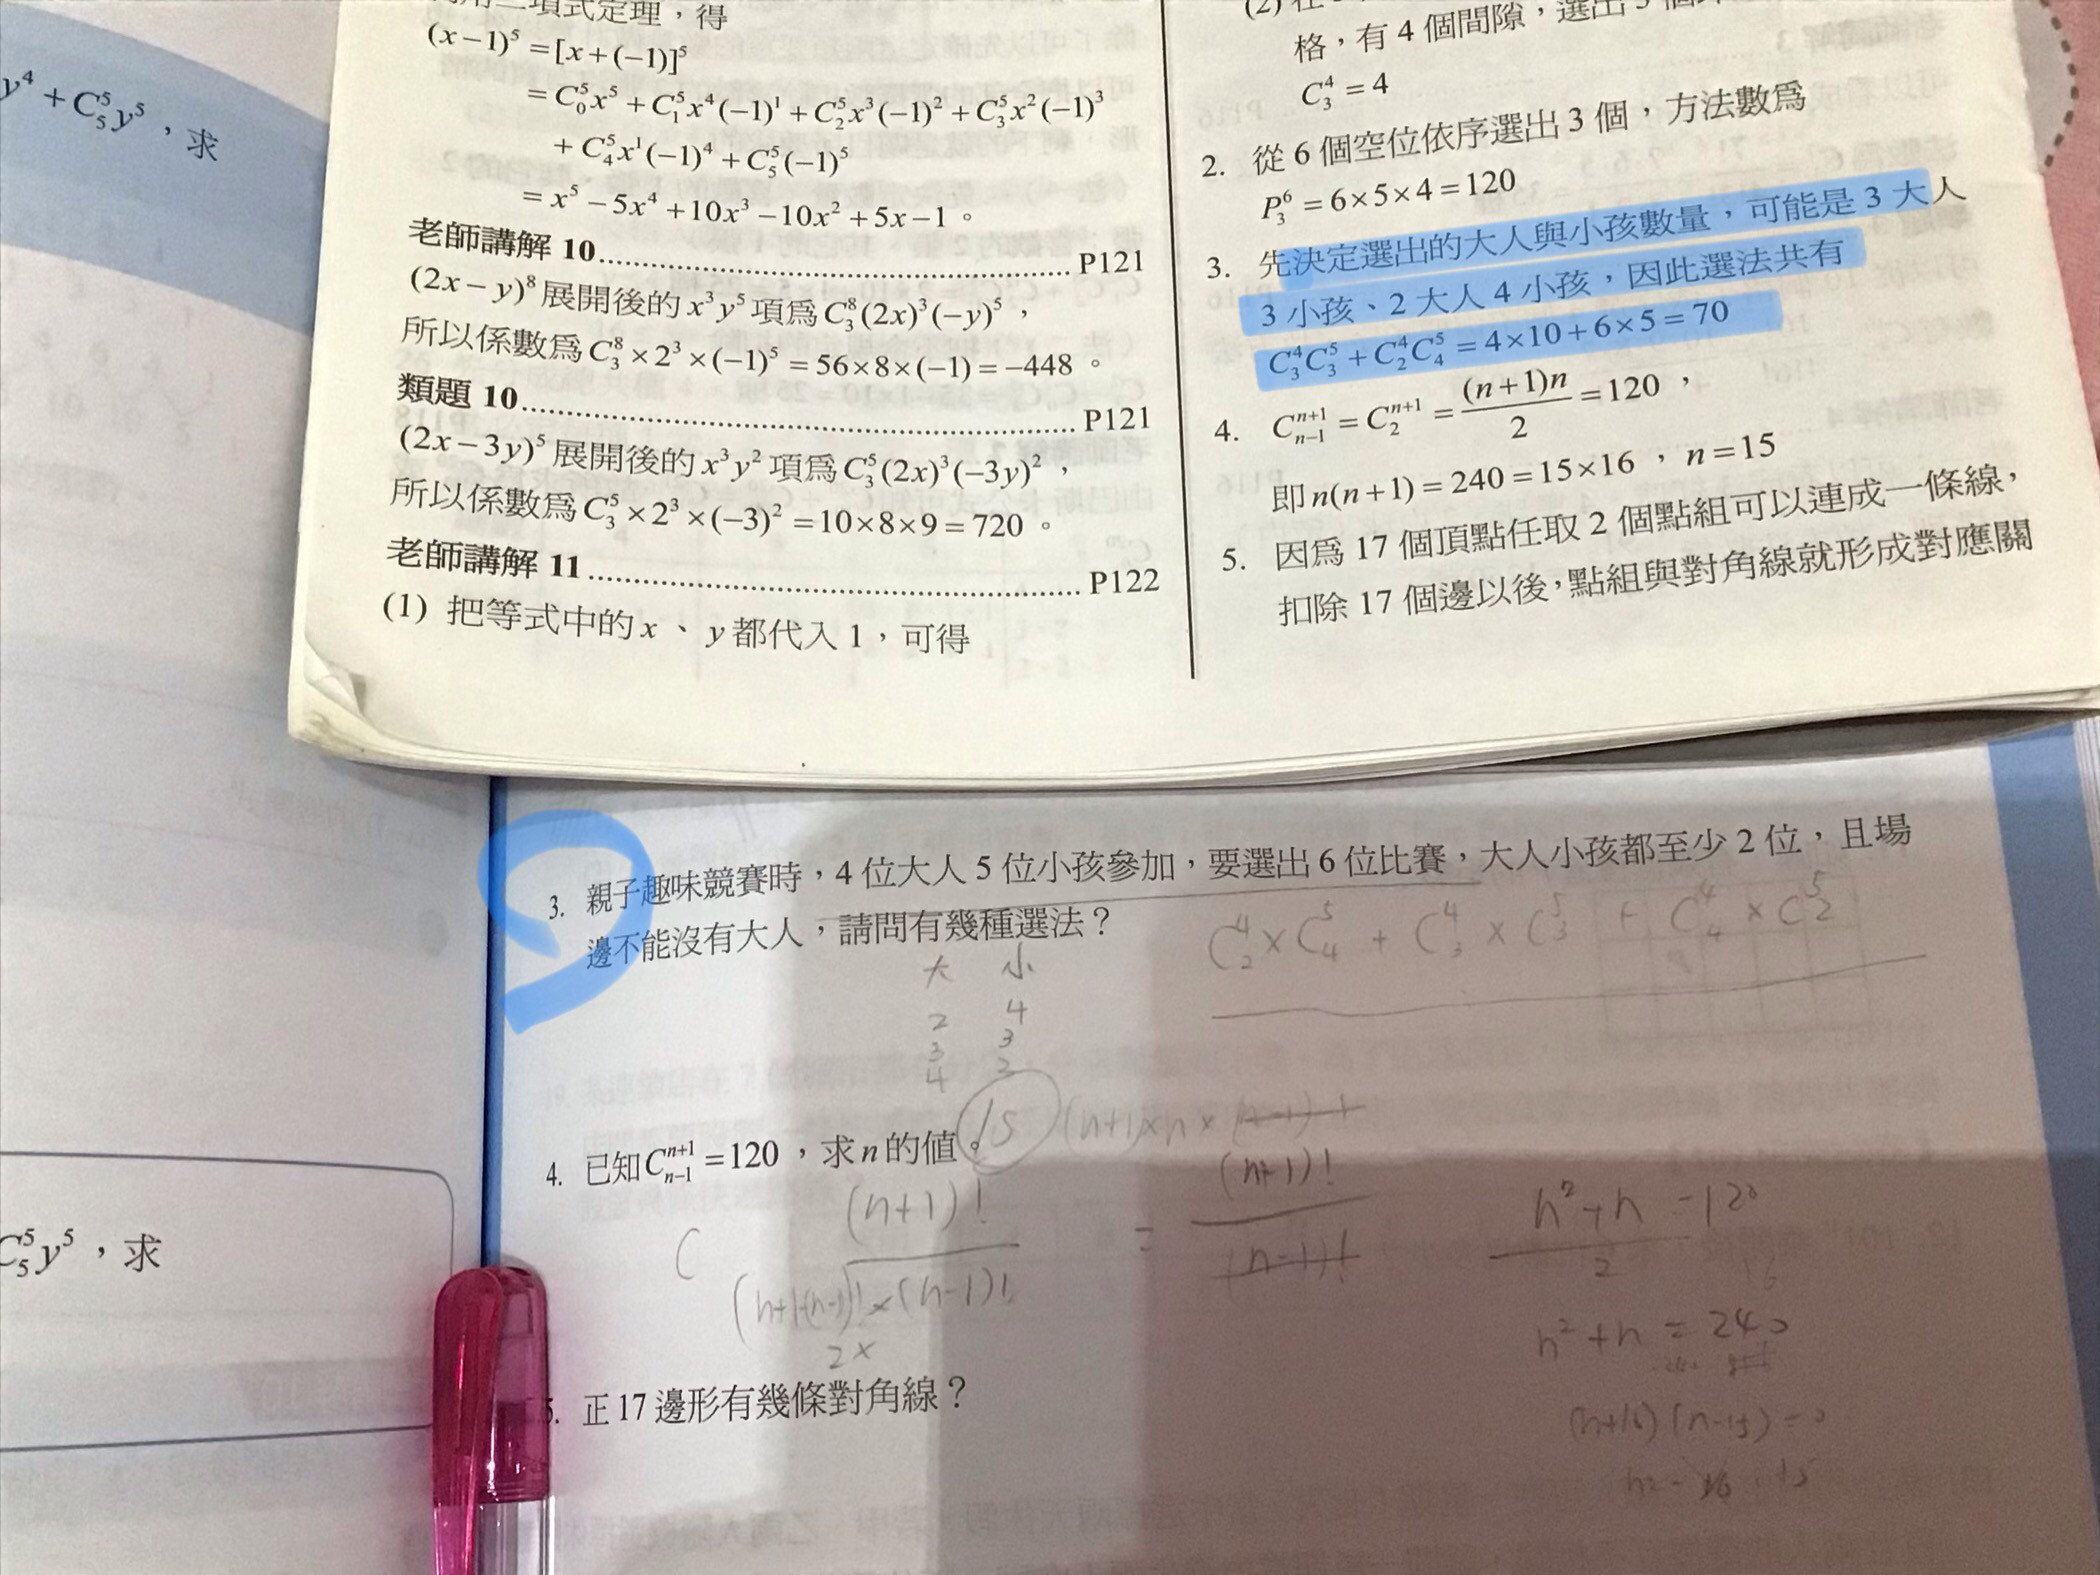 y⁴ + C₅⁵y⁵，求
C₅⁵y⁵，求
二項式定理，得
(x−1)⁵ = [x+(−1)]⁵
= C₀⁵x⁵ + C₁⁵x⁴(−1)¹ + C₂⁵x³(−1)² + C₃⁵x²(−1)³
+ C₄⁵x¹(−1)⁴ + C₅⁵(−1)⁵
= x⁵ − 5x⁴ + 10x³ − 10x² + 5x − 1。
老師講解 10 ........ P121
(2x−y)⁸ 展開後的 x³y⁵ 項為 C₃⁸(2x)³(−y)⁵，
所以係數為 C₃⁸ × 2³ × (−1)⁵ = 56×8×(−1) = −448。
類題 10 ........ P121
(2x−3y)⁵ 展開後的 x³y² 項為 C₃⁵(2x)³(−3y)²，
所以係數為 C₃⁵ × 2³ × (−3)² = 10×8×9 = 720。
老師講解 11 ........ P122
(1) 把等式中的 x、y 都代入 1，可得
格，有 4 個間隙，選出 3 個
C₃⁴ = 4
2. 從 6 個空位依序選出 3 個，方法數為
P₃⁶ = 6×5×4 = 120
3. 先決定選出的大人與小孩數量，可能是 3 大人
3 小孩、2 大人 4 小孩，因此選法共有
C₃⁴C₃⁵ + C₂⁴C₄⁵ = 4×10+6×5 = 70
4. Cₙ₋₁ⁿ⁺¹ = C₂ⁿ⁺¹ = (n+1)n/2 = 120，
即 n(n+1) = 240 = 15×16，n = 15
5. 因為 17 個頂點任取 2 個點組可以連成一條線，
扣除 17 個邊以後，點組與對角線就形成對應關
3. 親子趣味競賽時，4 位大人 5 位小孩參加，要選出 6 位比賽，大人小孩都至少 2 位，且場
邊不能沒有大人，請問有幾種選法？
C₂⁴ × C₄⁵ + C₃⁴ × C₃⁵ + C₄⁴ × C₂⁵
大 小
2 4
3 3
4 2
4. 已知 Cₙ₋₁ⁿ⁺¹ = 120，求 n 的值。
15
(n+1)!
(n+1-(n-1))! × (n-1)!
2×
= (n+1)!
(n-1)!
n²+n = 120
2
n²+n = 240
(n+16)(n-15) = 0
n = -16, 15
5. 正 17 邊形有幾條對角線？